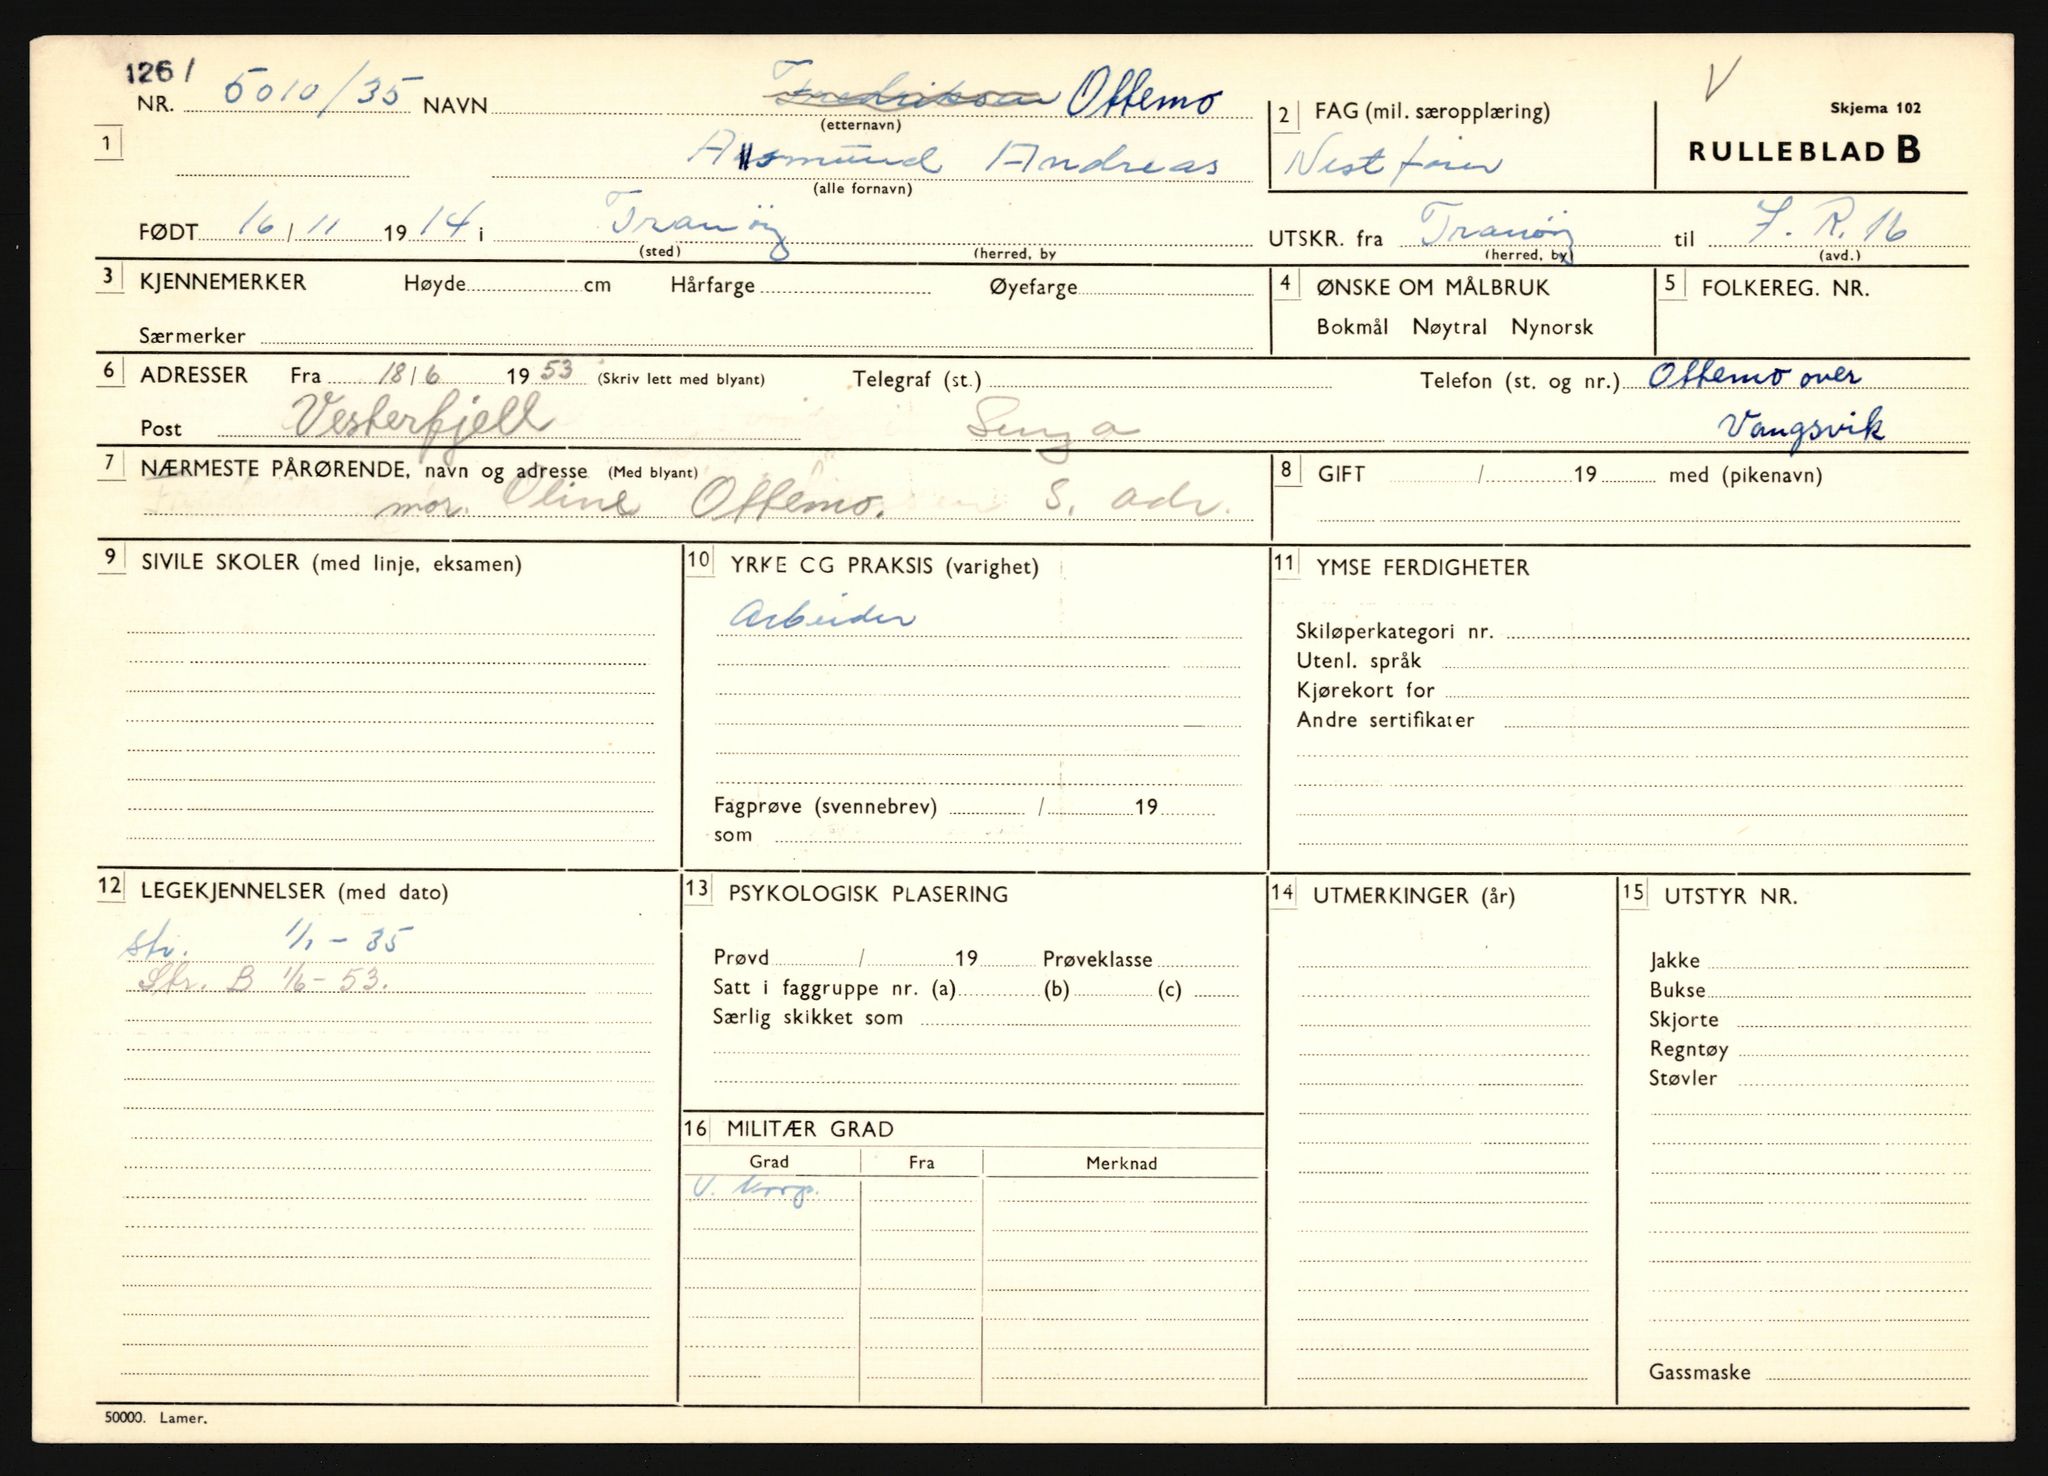 126 /
NR. 5010/35 NAVN Fredriksen Oftemo
(etternavn)
2 FAG (mil. særopplæring)
Skjema 102
V
1 Aasmund Andreas
(alle fornavn)
Nestfører
RULLEBLAD B
FØDT 16 / 11 1914 i Tranöy
(sted) (herred, by
UTSKR. fra Tranöy til I. R. 16
(herred, by) (avd.)
3 KJENNEMERKER Høyde cm Hårfarge Øyefarge
Særmerker
4 ØNSKE OM MÅLBRUK
Bokmål Nøytral Nynorsk
5 FOLKEREG. NR.
6 ADRESSER Fra 18/6 1953 (Skriv lett med blyant) Telegraf (st.) Telefon (st. og nr.) Oftemo over
Post Vesterfjell Senja Vangsvik
7 NÆRMESTE PÅRØRENDE, navn og adresse (Med blyant)
mor. Oline Oftemo. S. adr.
8 GIFT / 19 med (pikenavn)
9 SIVILE SKOLER (med linje, eksamen)
10 YRKE CG PRAKSIS (varighet)
Arbeider
Fagprøve (svennebrev) / 19
som
11 YMSE FERDIGHETER
Skiløperkategori nr.
Utenl. språk
Kjørekort for
Andre sertifikater
12 LEGEKJENNELSER (med dato)
Str. 1/1 - 35
Str. B 1/6 - 53.
13 PSYKOLOGISK PLASERING
Prøvd / 19 Prøveklasse
Satt i faggruppe nr. (a) (b) (c)
Særlig skikket som
14 UTMERKINGER (år)
15 UTSTYR NR.
Jakke
Bukse
Skjorte
Regntøy
Støvler
Gassmaske
16 MILITÆR GRAD
Grad Fra Merknad
V. korp.
50000. Lamer.